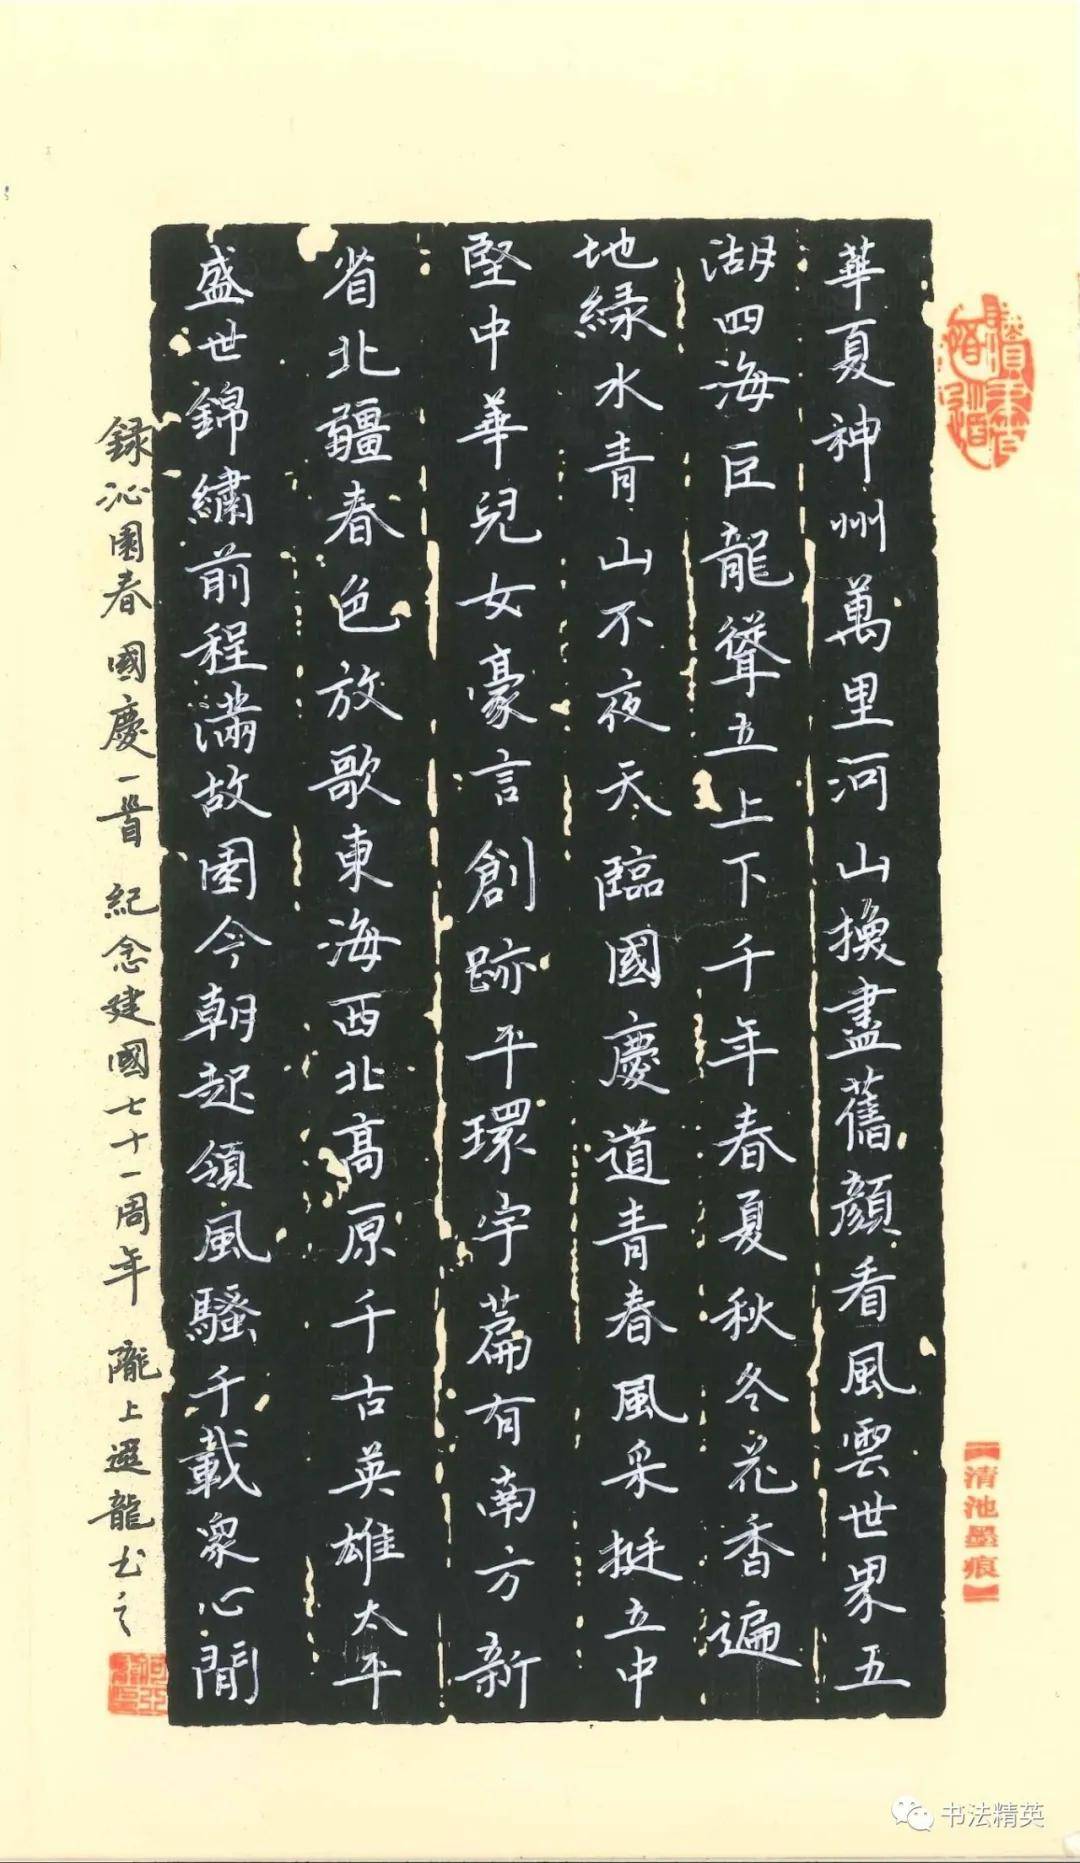 華夏神州萬里河山換盡舊顏看風雲世界五
湖四海巨龍聳立上下千年春夏秋冬花香遍
地綠水青山不夜天臨國慶道青春風采挺立中
堅中華兒女豪言創跡平環宇篇有南方新
省北疆春色放歌東海西北高原千古英雄太平
盛世錦繡前程滿故園今朝起領風騷千載眾心間
錄沁園春國慶一首 紀念建國七十一周年 隴上遐龍書之
【清池墨痕】
书法精英